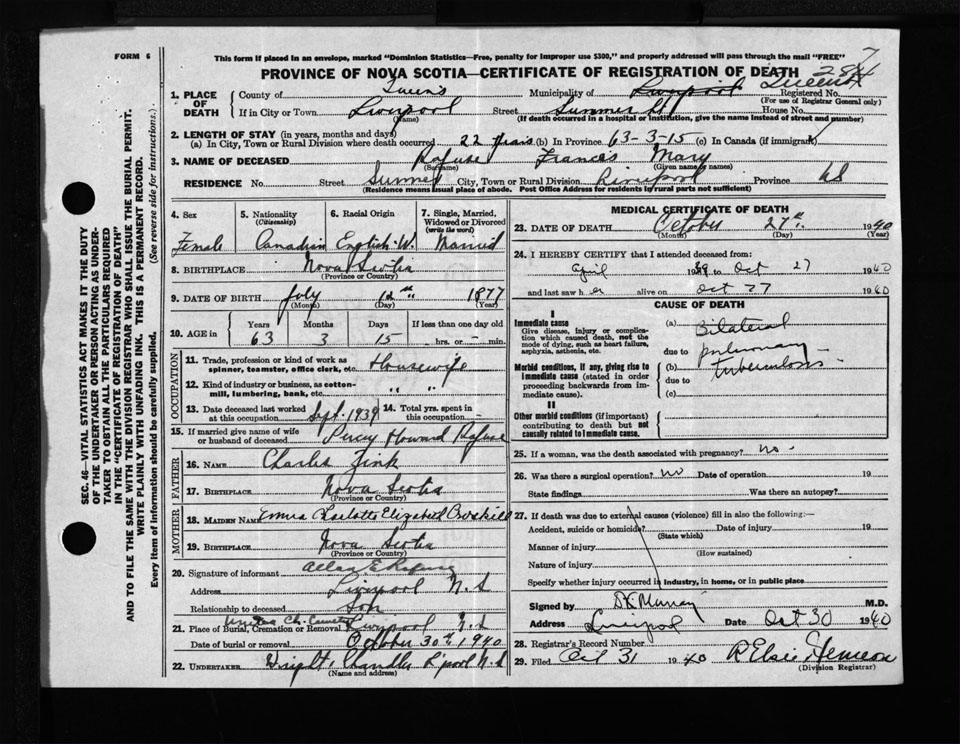 FORM 6
This form if placed in an envelope, marked "Dominion Statistics—Free, penalty for improper use $300," and properly addressed will pass through the mail "FREE"
PROVINCE OF NOVA SCOTIA—CERTIFICATE OF REGISTRATION OF DEATH
1. PLACE OF DEATH
County of Queens Municipality of Liverpool Registered No.
(For use of Registrar General only)
If in City or Town Liverpool Street Summer St House No.
(Name) (If death occurred in a hospital or institution, give the name instead of street and number)
2. LENGTH OF STAY (in years, months and days)
(a) In City, Town or Rural Division where death occurred 22 years (b) In Province 63-3-15 (c) In Canada (if immigrant)
3. NAME OF DECEASED Rafuse Frances Mary
(Surname) (Given name or names)
RESIDENCE No. Street Summer City, Town or Rural Division Liverpool Province NS
(Residence means usual place of abode. Post Office Address for residents in rural parts not sufficient)
4. Sex
Female
5. Nationality (Citizenship)
Canadian
6. Racial Origin
English W.
7. Single, Married, Widowed or Divorced (write the word)
Married
8. BIRTHPLACE Nova Scotia
(Province or Country)
9. DATE OF BIRTH July 12th 1877
(Month) (Day) (Year)
10. AGE in Years Months Days If less than one day old
63 3 15 hrs. or min.
OCCUPATION
11. Trade, profession or kind of work as spinner, teamster, office clerk, etc. Housewife
12. Kind of industry or business, as cotton-mill, lumbering, bank, etc. " "
13. Date deceased last worked at this occupation Sept. 1939 14. Total yrs. spent in this occupation -
15. If married give name of wife or husband of deceased Percy Howard Rafuse
FATHER
16. NAME Charles Zink
17. BIRTHPLACE Nova Scotia
(Province or Country)
MOTHER
18. MAIDEN NAME Emma Charlotte Elizabeth
19. BIRTHPLACE Nova Scotia
(Province or Country)
20. Signature of informant Allan E Rafuse
Address Liverpool N.S
Relationship to deceased Son
21. Place of Burial, Cremation or Removal United Ch. Cemetery Liverpool N S
Date of burial or removal October 30th, 1940
22. UNDERTAKER Wright Chandler L'pool N.S
(Name and address)
MEDICAL CERTIFICATE OF DEATH
23. DATE OF DEATH October 27th. 1940
(Month) (Day) (Year)
24. I HEREBY CERTIFY that I attended deceased from:
April 1939 to Oct 27 1940
and last saw h er alive on Oct 27 1940
CAUSE OF DEATH
I
Immediate cause
Give disease, injury or complication which caused death, not the mode of dying, such as heart failure, asphyxia, asthenia, etc.
(a) Bilateral
due to pulmonary
Morbid conditions, if any, giving rise to immediate cause (stated in order proceeding backwards from immediate).
(b) tuberculosis
due to
(c)
II
Other morbid conditions (if important) contributing to death but not causally related to immediate cause.
25. If a woman, was the death associated with pregnancy? no.
26. Was there a surgical operation? no Date of operation 19
State findings Was there an autopsy?
27. If death was due to external causes (violence) fill in also the following:—
Accident, suicide or homicide? Date of injury 19
(State which)
Manner of injury
(How sustained)
Nature of injury
Specify whether injury occurred in industry, in home, or in public place
Signed by Murray M.D.
Address Liverpool Date Oct 30 1940
28. Registrar's Record Number
29. Filed Oct 31 1940 R Elsie
(Division Registrar)
SEC. 46—VITAL STATISTICS ACT MAKES IT THE DUTY OF THE UNDERTAKER OR PERSON ACTING AS UNDERTAKER TO OBTAIN ALL THE PARTICULARS REQUIRED IN THE "CERTIFICATE OF REGISTRATION OF DEATH" AND TO FILE THE SAME WITH THE DIVISION REGISTRAR WHO SHALL ISSUE THE BURIAL PERMIT.
WRITE PLAINLY WITH UNFADING INK. THIS IS A PERMANENT RECORD.
Every item of information should be carefully supplied. (See reverse side for instructions.)